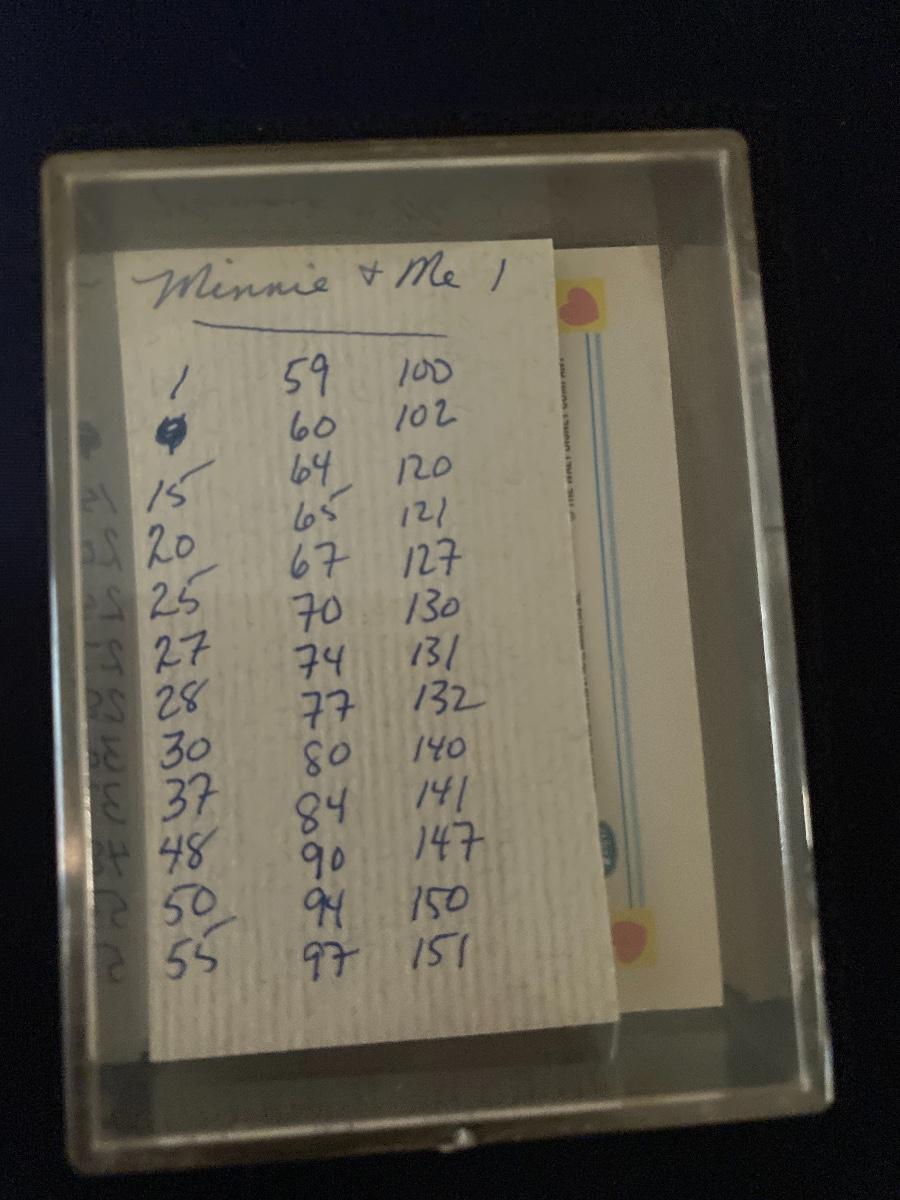 Minnie + Me 1
1 59 100
60 102
15 64 120
20 65 121
25 67 127
27 70 130
28 74 131
30 77 132
37 80 140
48 84 141
50 90 147
55 94 150
97 151
© THE WALT DISNEY COMPANY